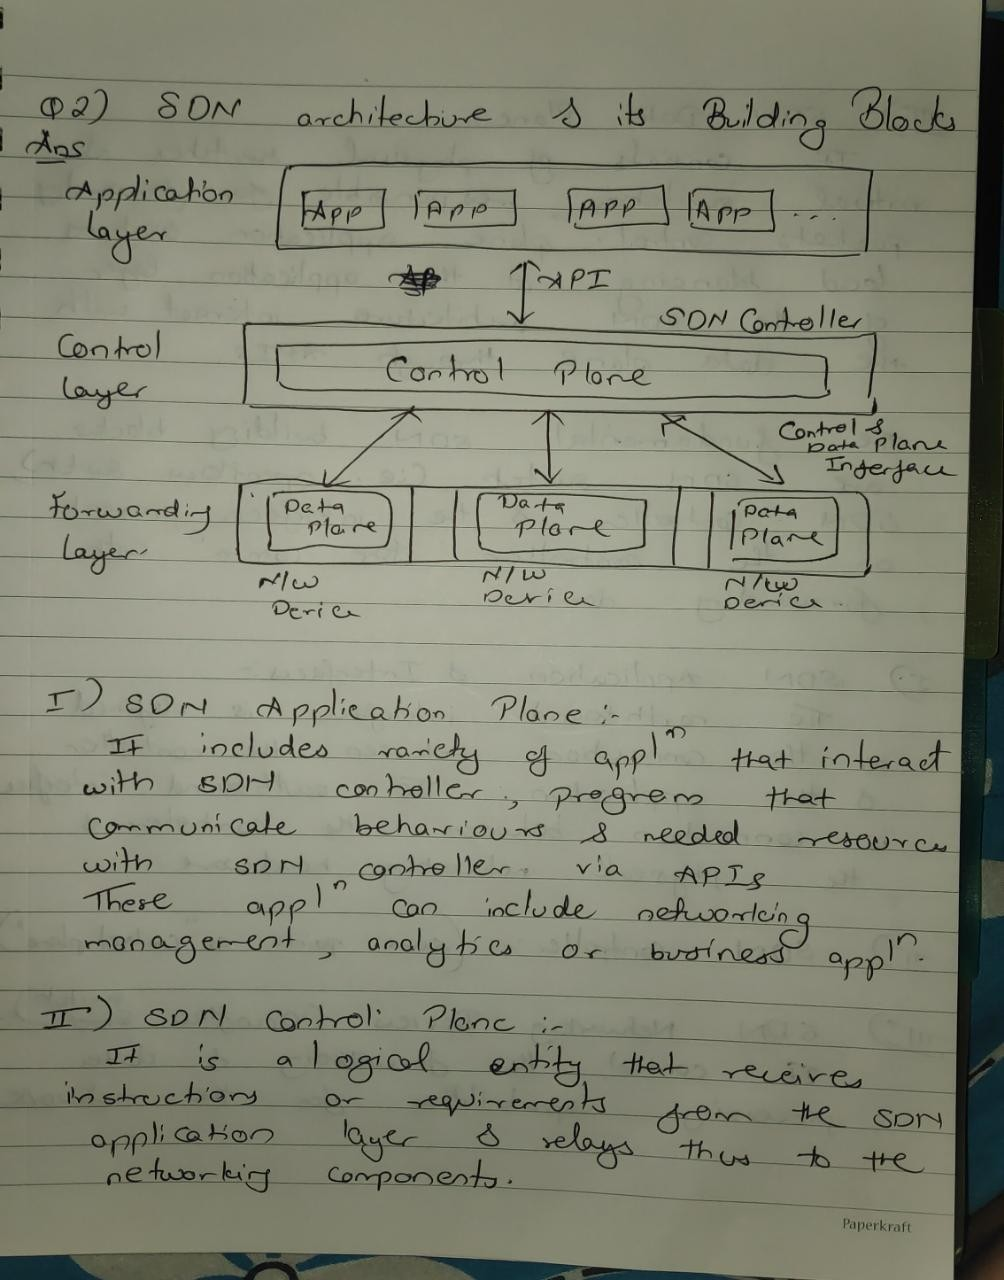 Q2) SDN architecture & its Building Blocks
Ans
Application Layer
APP APP APP APP ...
API
SDN Controller
Control Layer
Control Plane
Control & Data Plane Interface
Forwarding Layer
Data Plane
Data Plane
Data Plane
N/W Device
N/W Device
N/W Device
I) SDN Application Plane :-
It includes variety of applⁿ that interact
with SDN controller, program that
communicate behaviours & needed resource
with SDN controller via APIs
These applⁿ can include networking
management, analytics or business applⁿ.
II) SDN Control Plane :-
It is a logical entity that receives
instructions or requirements from the SDN
application layer & relays thus to the
networking components.
Paperkraft